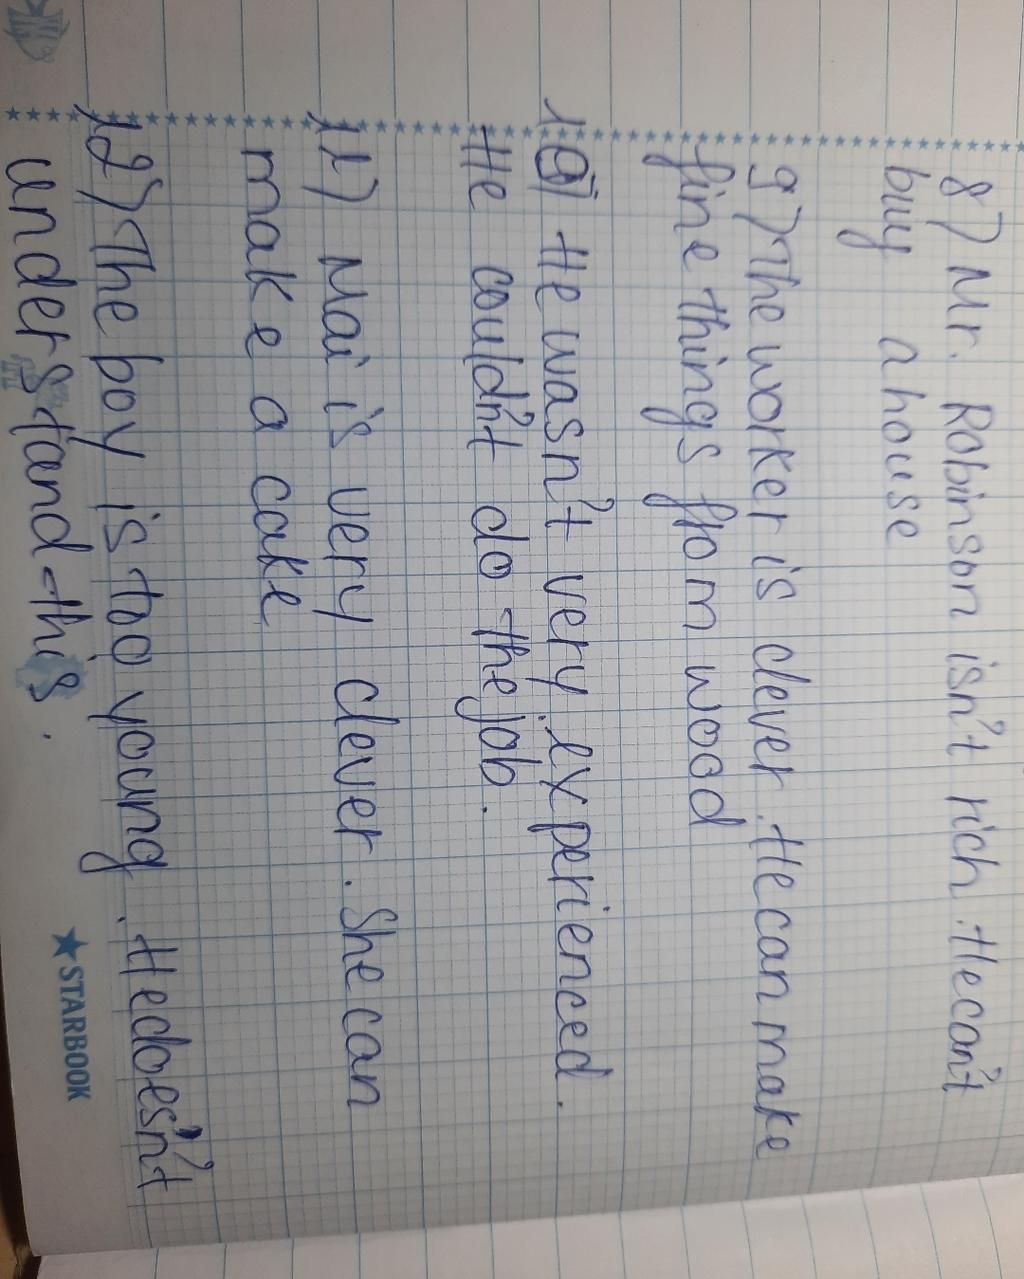 8) Mr. Robinson isn't rich. He can't
buy a house
9) The worker is clever. He can make
fine things from wood
10) He wasn't very experienced.
He couldn't do the job.
11) Mai is very clever. She can
make a cake
12) The boy is too young. He doesn't
understand this.
STARBOOK